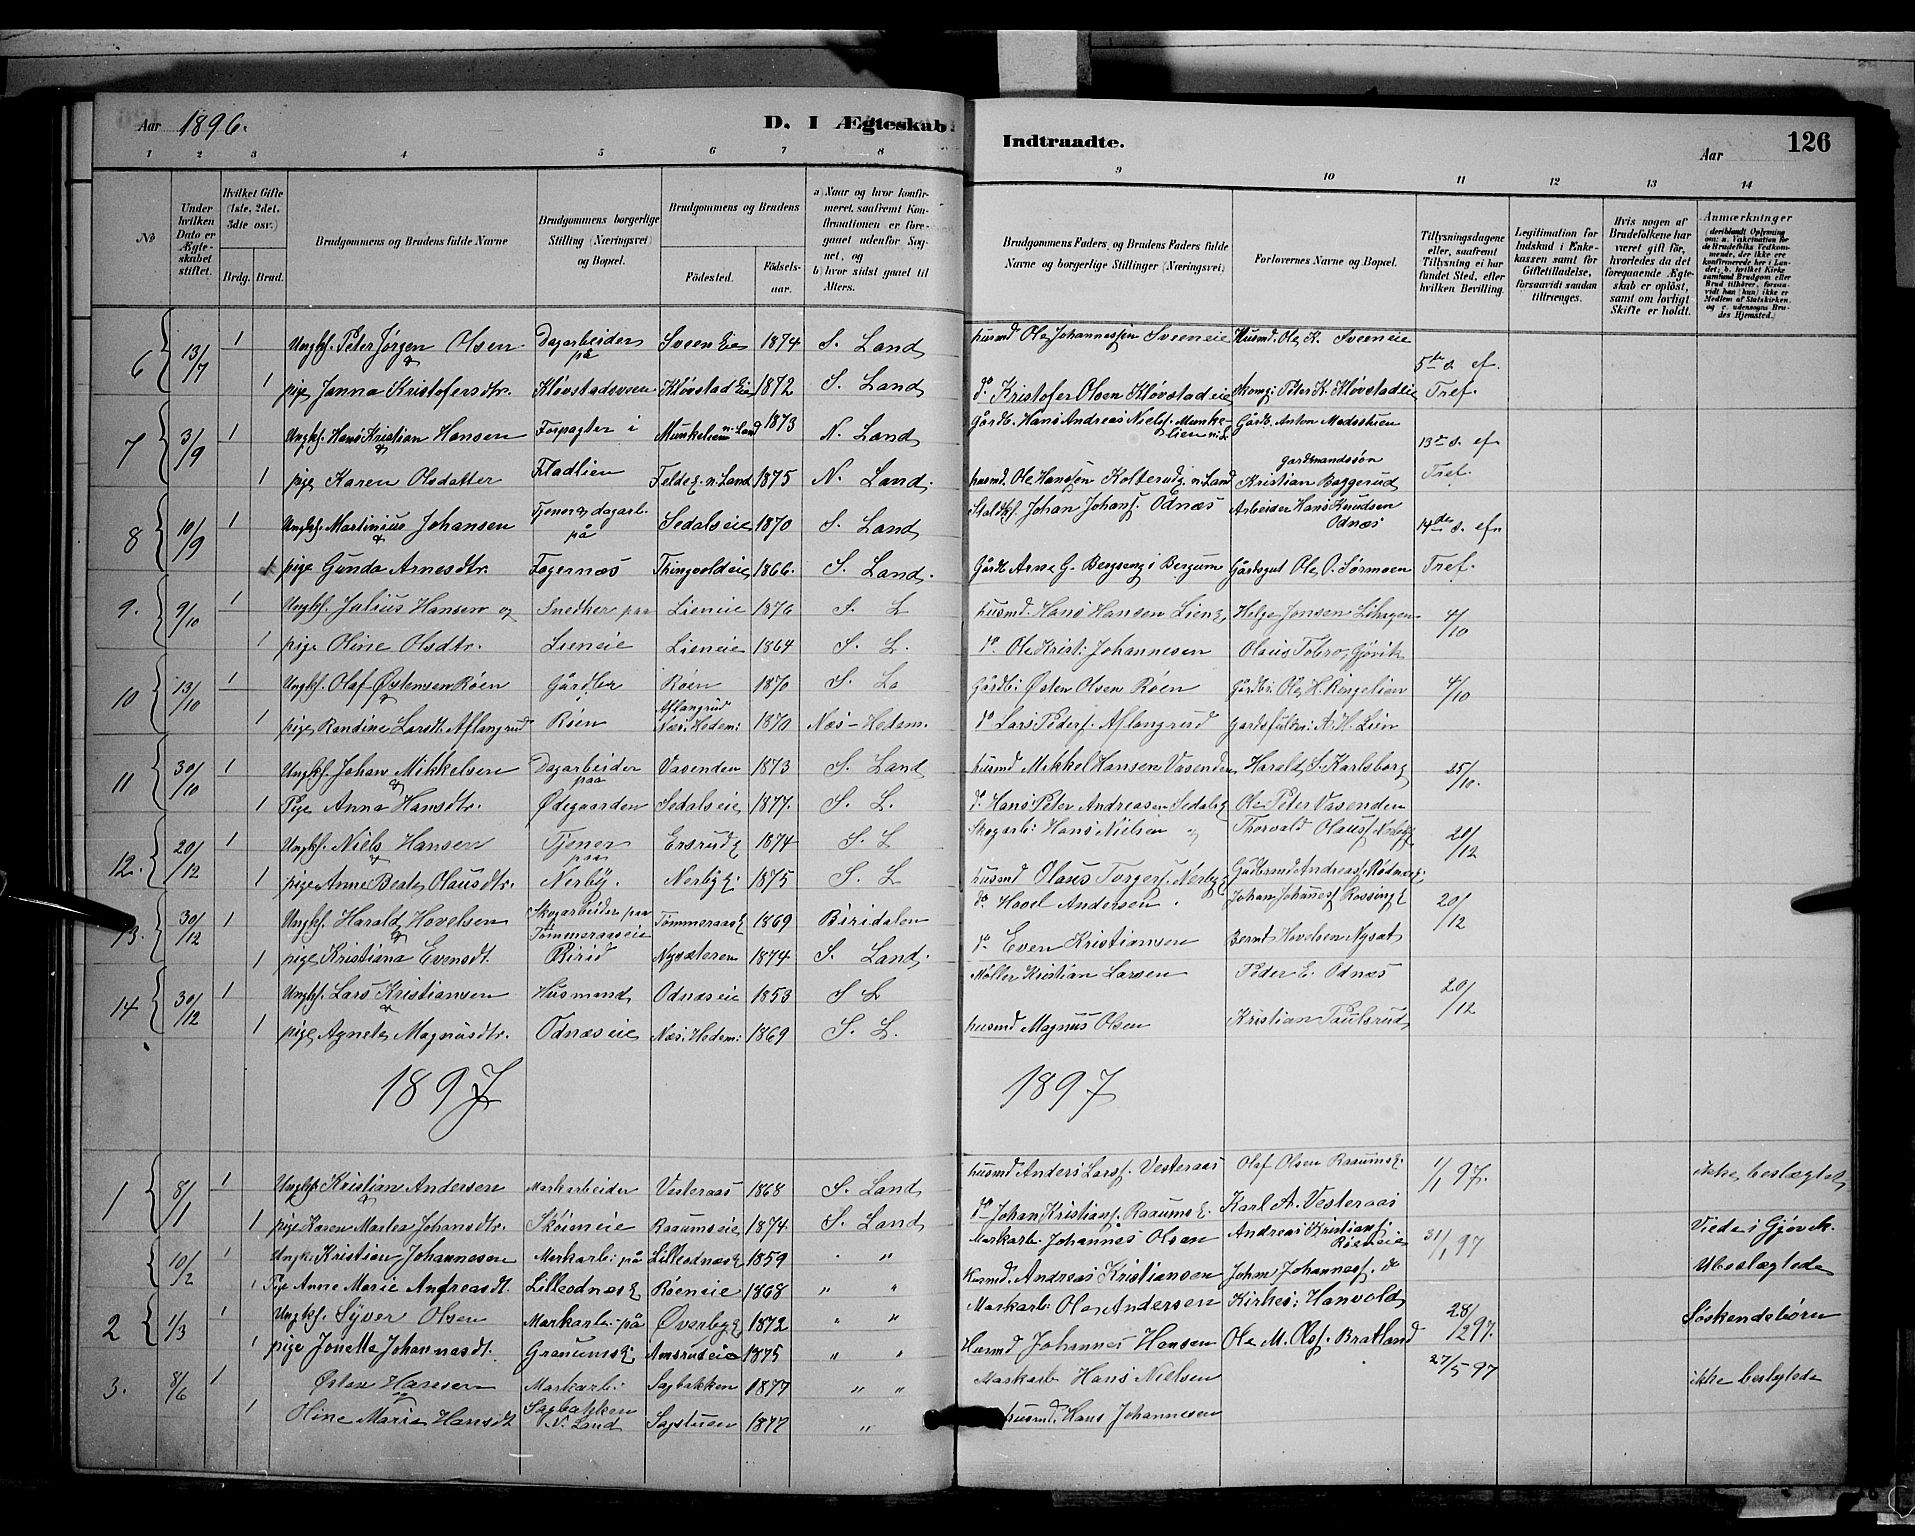 Aar 1896.
D. I Ægteskab
Indtraadte.
Aar
126
1 2 3 4 5 6 7 8 9 10 11 12 13 14
No
Under hvilken Dato er Ægteskabet stiftet.
Hvilket Gifte (1ste, 2det, 3die osv.)
Brdg. Brud.
Brudgommens og Brudens fulde Navne
Brudgommens borgerlige Stilling (Næringsvei) og Bopæl.
Brudgommens og Brudens
Fødested.
Fødselsaar.
a) Naar og hvor konfirmeret, saafremt Konfirmationen er foregaaet udenfor Sognet, og
b) hvor sidst gaaet til Alters.
Brudgommens Faders, og Brudens Faders fulde Navne og borgerlige Stillinger (Næringsvei)
Forlovernes Navne og Bopæl.
Tillysningsdagene eller, saafremt Tillysning ei har fundet Sted, efter hvilken Bevilling.
Legitimation for Indskud i Enkekassen samt for Giftetilladelse, forsaavidt saadan tiltrænges.
Hvis nogen af Brudefolkene har været gift før, hvorledes da det foregaaende Ægteskab er opløst, samt om lovligt Skifte er holdt.
Anmærkninger
(deriblandt Oplysning om: a. Vakcination for de Brudefolks Vedkommende, der ikke ere konfirmerede her i Landet; b. hvilket Kirkesamfund Brudgom eller Brud tilhører, forsaavidt han (hun) ikke er Medlem af Statskirken, og c. udensogns Brudes Hjemsted.)
6 13/7 1 Ungkf. Peter Jørgen Olsen & Dagarbeider på Sveen Eie 1874 S. Land husmd Ole Johannessen Sveeneie Husmd. Ole K. Sveeneie 5te s. ef.
1 pige Janna Kristofersdtr. Kløvstadeveen Kløvstad Eie 1872 S. Land do. Kristofer Olsen Kløvstadeie Skomg: Peter K. Kløvstadeie Tref.
7 3/9 1 Ungkf. Hans Kristian Hansen & Forpagter i Munkelien n. Land 1873 N. Land Gårdb. Hans Andreas Niels. Munkelien n. L. Gårdb. Anton Madsstuen 13de s. ef
1 pige Karen Olsdatter Fladlien Felde E. n. Land 1875 N. Land. husmd Ole Hanssen Koltervdg n. Land gardmandssøn Kristian Baggerud Tref
8 10/9 1 Ungkf. Martinius Johansen & Tjener & dagarb. på Sedalseie 1870 S. Land Staldkf. Johan Johans. Odnæs Arbeider Hans Knudsen Odnæs 14de s. efn
1 pige Gunda Arnesdtr. Fagernæs Thingvoldeie 1866. S. Land. Gårdb Arne G. Bergseng i Bergum Gårdsgut Ole O. Sørmoen Tref.
9. 9/10 1 Ungkf. Julius Hansen og Snedker paa Lieneie 1876 S. L husmd. Hans Hansen Lien E. Helge Jonsen Lihagen 4/10
1 pige Oline Olsdtr. Lieneie Lieneie 1864 S. L. do. Ole Krist: Johannesen Olaus Fobro, Gjøvik
10 13/10 1 Ungkf. Olaf Østensen Røen & Gårdbr Røen 1870 S. La Gårdb: Østen Olsen Røen Gårdbr: Ole H. Ringelien 4/10
1 pige Randine Larsdt. Aflangrud Røen Aflangrud Næs: Hedem: 1870 Næs-Hedem. do Lars Peders. Aflangrud Gardsfuldm: A. H. Lien
11 30/10 1 Ungkf. Johan Mikkelsen & Dagarbeider paa Vasenden 1873 S. Land husmd Mikkel Hansen Vasenden Harald S. Karlsborg 25/10.
1 Pige Anna Hansdtr. Ødegaarden Sedalseie 1877. S. L. do. Hans Peter Andreasen Sedals E Ole Peter Vasenden
12. 20/12 1 Ungkf. Niels Hansen & Tjener paa Ersrud E 1874 S. L Skogarb: Hans Nielsen " Thorvald Olaus. Nerby E 20/12
1 pige Anne Beate Olausdtr. Nerby. Nerby E. 1875 S. L husmd Olaus Torgers. Nerby E Gårdbrand Andreas. Rødnes E.
13. 30/12 1 Ungkf. Harald Hovelsen & Skogarbeider paa Tømmeraaseie Tømmeraas E 1869 Biridalen do. Hovel Andersen. Johan Johannes. Rossing E 20/12
1 pige Kristiana Evensdt. Birid Nysæteren 1874 S. Land. do. Even Kristiansen Bernt Hovelsen Nysæt
14 30/12 1 Ungkf. Lars Kristiansen & Husmand Odnæseie 1853 S L Møller Kristian Larsen Peder E. Odnæs 20/12
1 pige Agnete Magnusdtr. Odnæseie Næs: Hedem: 1869 S. L. husmd Magnus Olsen Kristian Paulsrud
1897 1897
1 8/1 1 Ungkf. Kristian Andersen & Markarbeider Vesteraas 1868 S. Land husmd Anders Lars. Vesteraas Olaf Olsen Raaums E. 1/1 97. ikke beslægtet
1 pige Karen Martea Johansdtr. Skøieneie Raaumseie 1874 S. Land do Johan Kristians. Raaums E. Karl A. Vesteraas Viede i Gjøvik.
10/2 1 Ungke Kristian Johannesen Markarb: på Lilleodnæs E 1859 " " Markarb. Johannes Olsen Andreas Kristians. Røeneie 31/1 97 Ubeslægtede
1 Pige Anne Marie Andreasdt. Lilleodnæs E Røeneie 1868 " " Husmd. Andreas Kristiansen John Johannes. do
2 1/3 1 Ungkf. Syver Olsen Markarb: på Øverby E 1872 " " Markarb. Ole Andersen Kirkes: Hanvold 28/2 97. Søskendebørn
1 pige Jonette Johannasdt. Granums E. Amsruseie 1875 " " Husmd Johannes Hansen Ole M. Ols. Bratland
3. 8/6 1 Østen Hansen og Markarb: Sagbakken 1877 " " Markarb Hans Nielsen 27/5 97 ikke beslgtede
1 Oline Marie Hansdt Sagbakken N. Land Sagstuen 1877 " husmd. Hans Johannesen